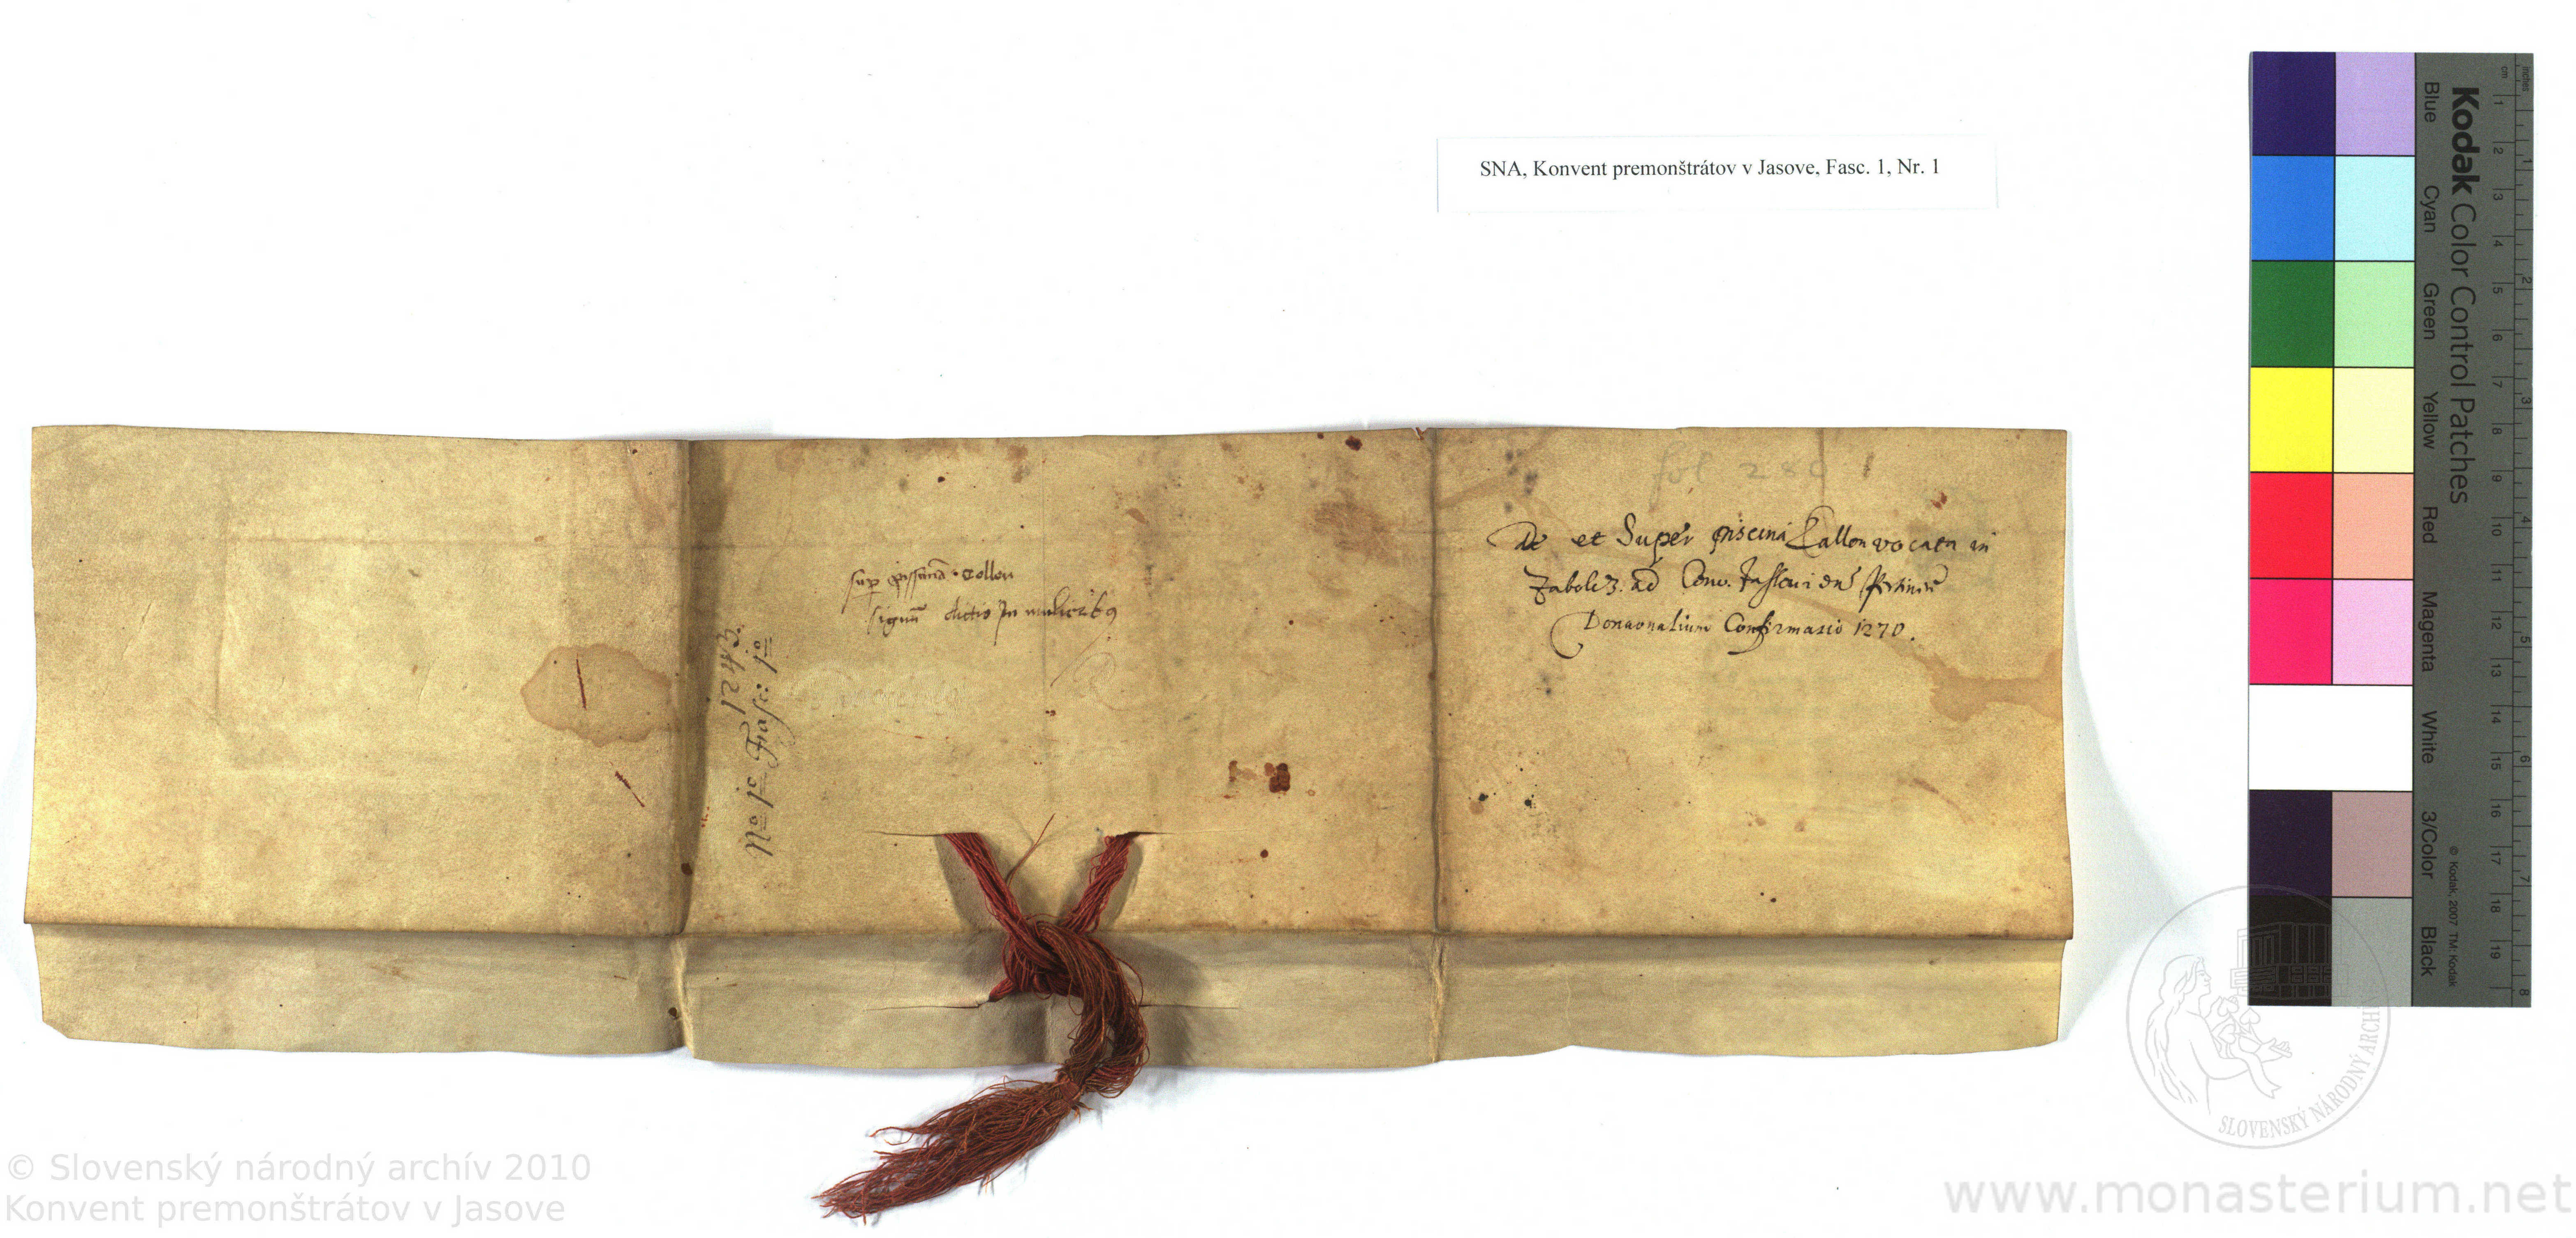 SNA, Konvent premonštrátov v Jasove, Fasc. 1, Nr. 1
fol 280
sup piscinā Tollou
signū dictis In mulieribꝯ
De et Super piscina Tallon vocata in
Zabolcz. ad Conv.
Donaonalium Confirmatio 1270.
1243
Nº 1º Fasc: 1º
Kodak Color Control Patches
Blue Cyan Green Yellow Red Magenta White 3/Color Black
© Kodak, 2007 TM: Kodak
inches 1 2 3 4 5 6 7 8
cm 1 2 3 4 5 6 7 8 9 10 11 12 13 14 15 16 17 18 19
SLOVENSKÝ NÁRODNÝ ARCHÍV
© Slovenský národný archív 2010
Konvent premonštrátov v Jasove
www.monasterium.net